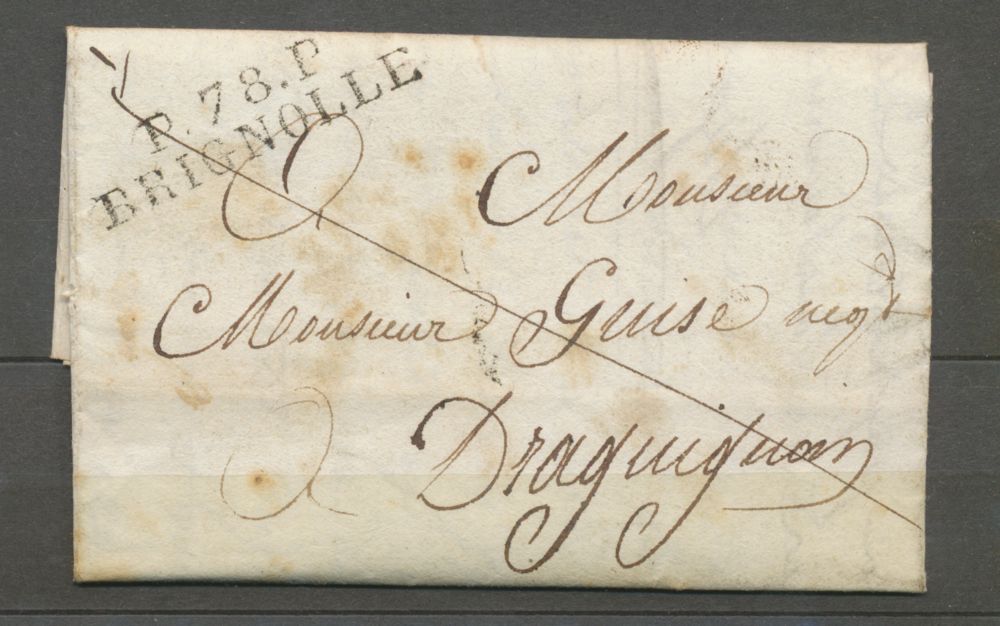 P. 78. P
BRIGNOLLE
A Monsieur
Monsieur Guise negt
A Draguignan